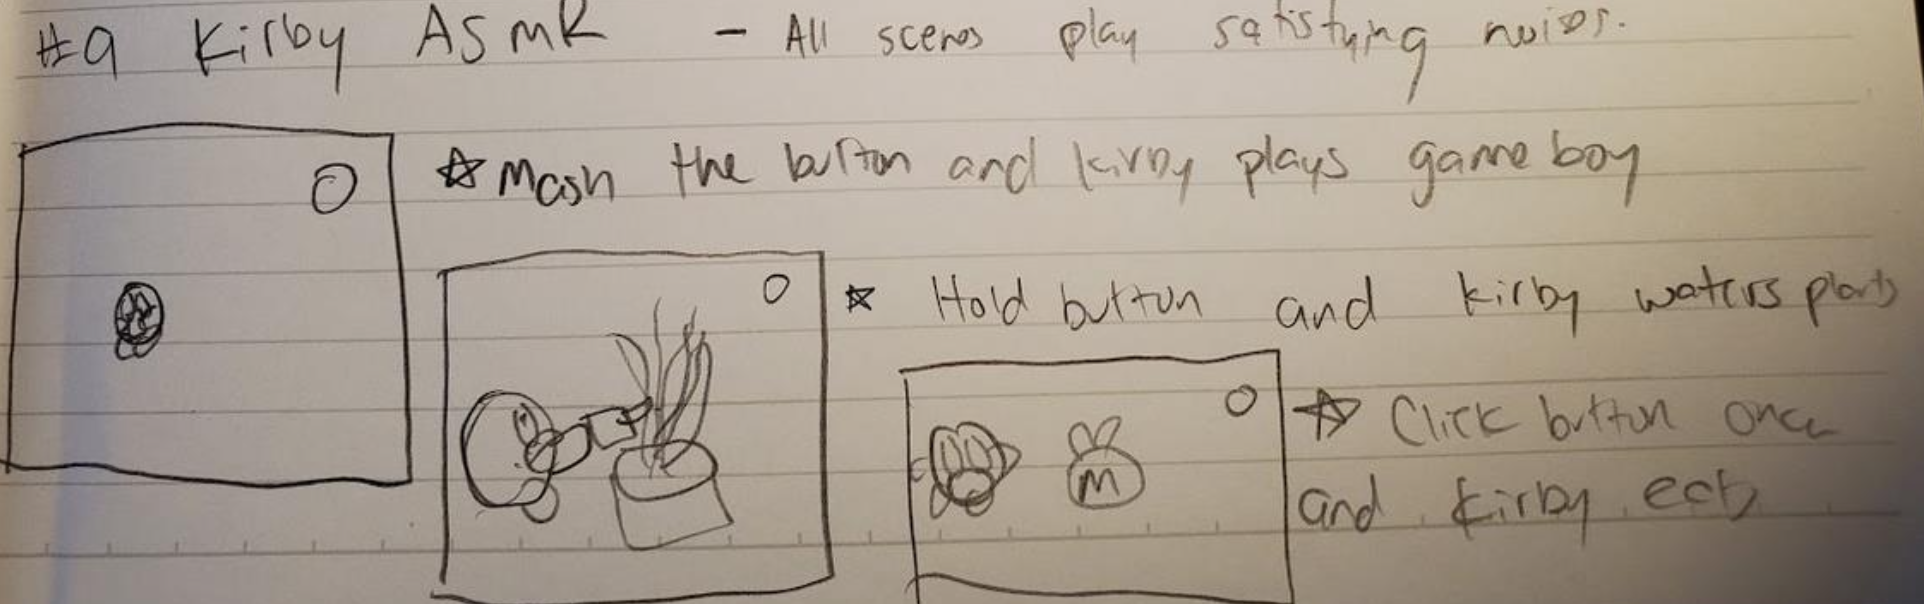 #9 Kirby ASMR - All scenes play satisfying noises.
☆ Mash the button and kirby plays gameboy
☆ Hold button and kirby waters plants
M
☆ Click button once
and kirby eats